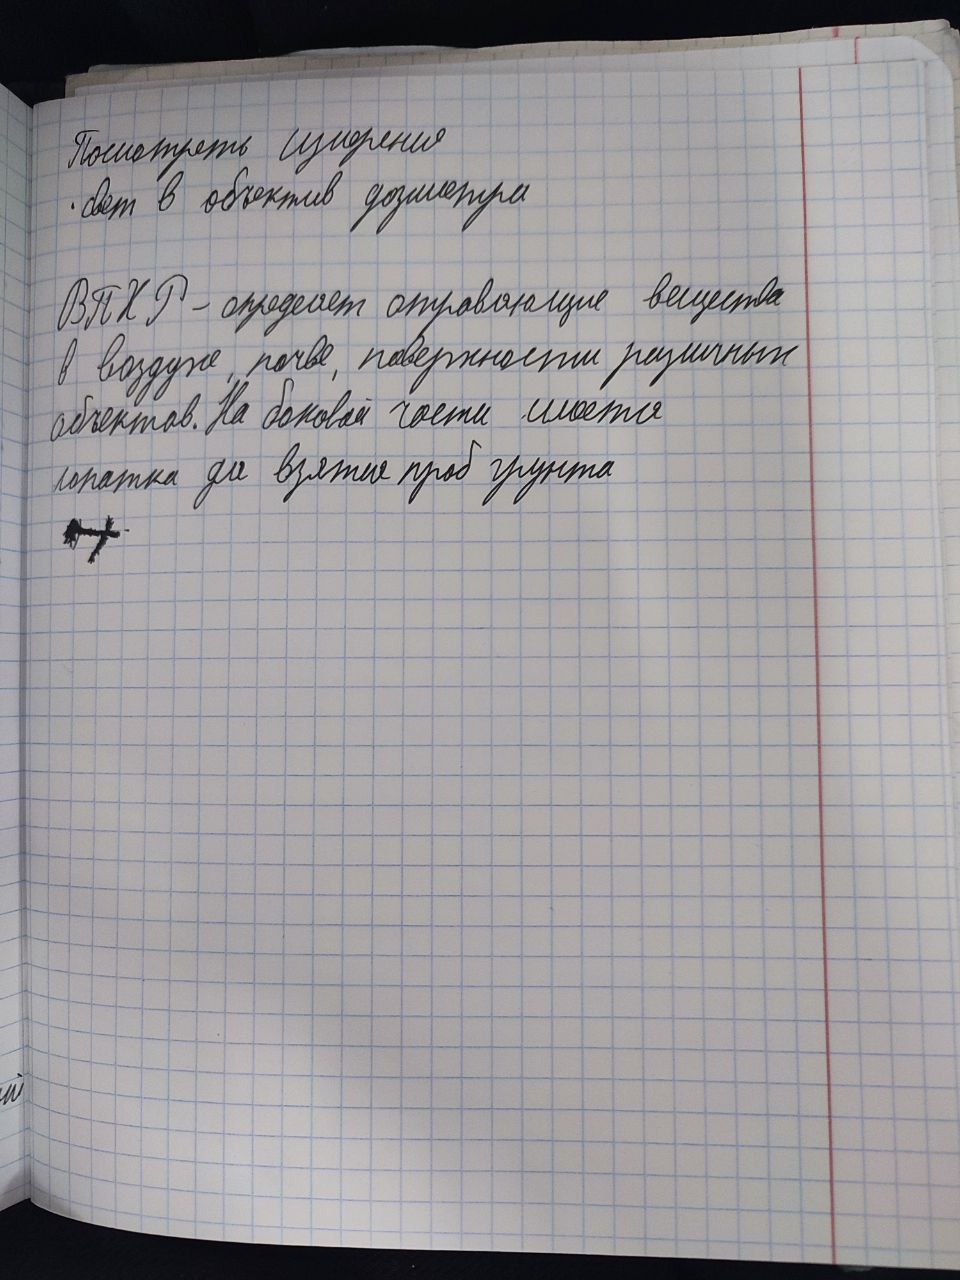 Посмотреть измерения
· свет в объектив дозиметра
ВПХР - определяет отравляющие вещества
в воздухе, почве, поверхности различных
объектов. На боковой части имеется
лопатка для взятия проб грунта